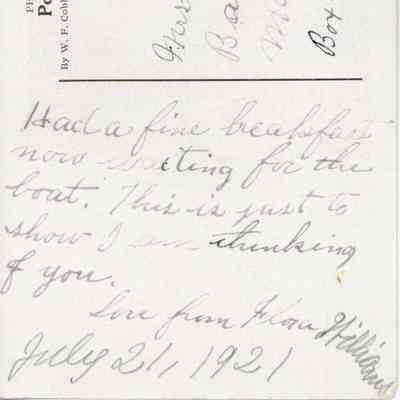 By W. F. Cobb
Mrs
Ba
Box
Had a fine breakfast
now waiting for the
boat. This is just to
show I am thinking
of you.
Love from Flora Williams
July 21, 1921